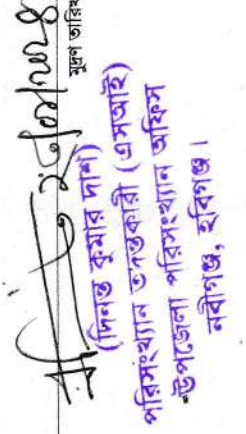 মুদ্রণ তারিখ
(দিনন্ত কুমার দাশ)
পরিসংখ্যান তদন্তকারী (এসআই)
উপজেলা পরিসংখ্যান অফিস
নবীগঞ্জ, হবিগঞ্জ।